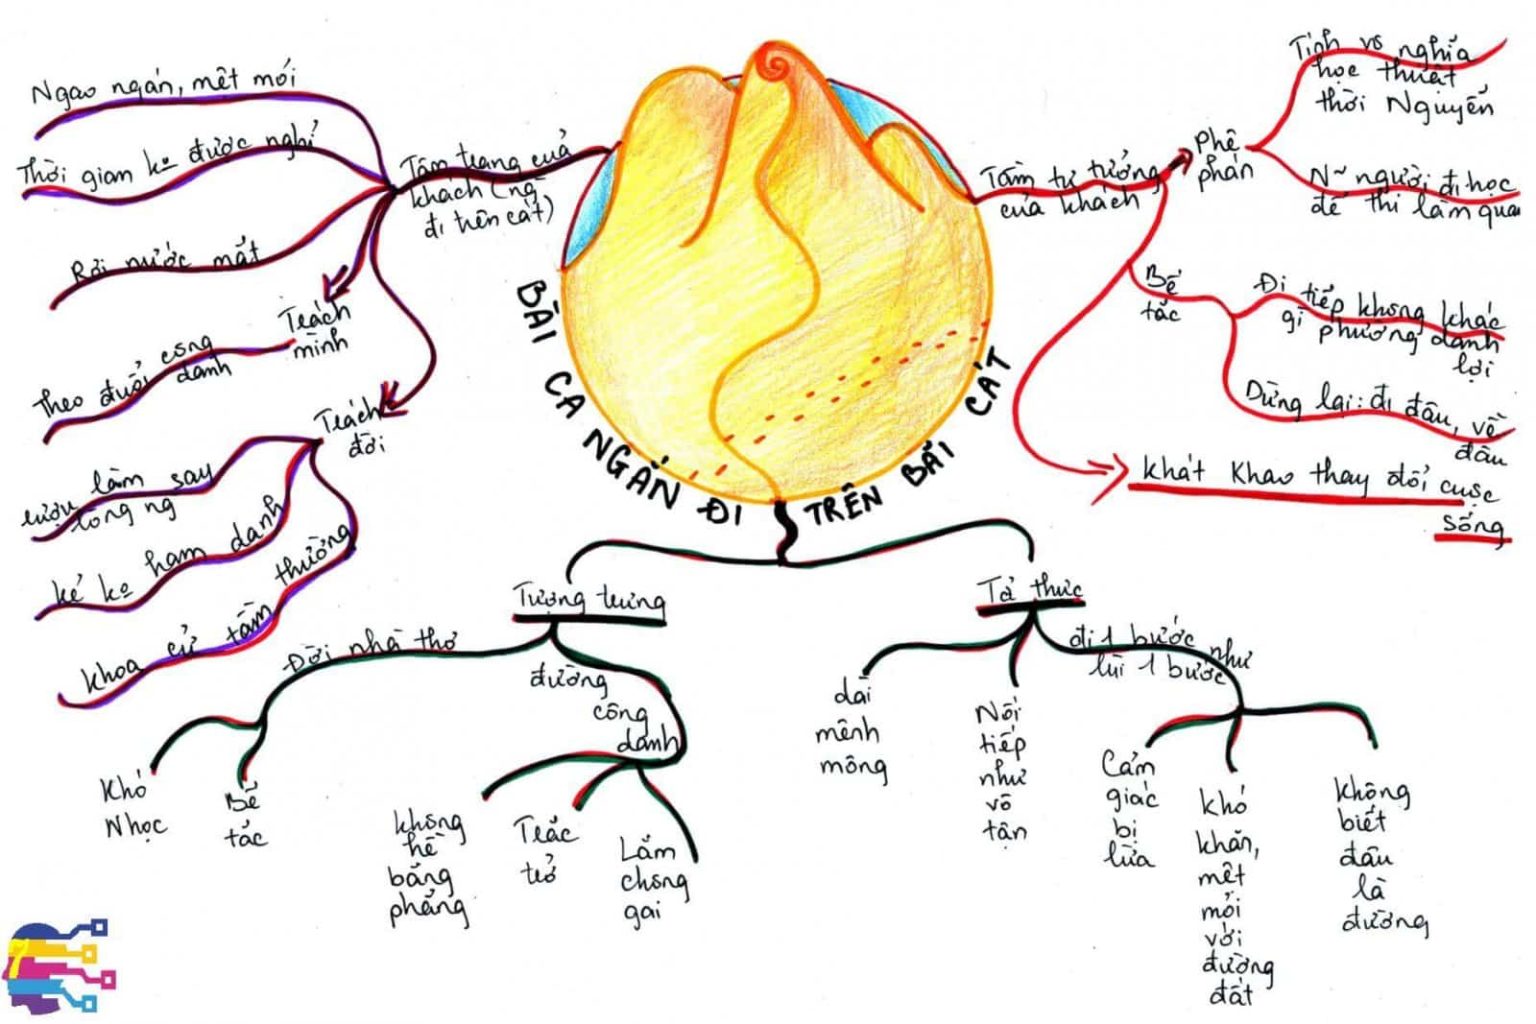 BÀI CA NGẮN ĐI TRÊN BÃI CÁT
Tâm trạng của
khách (ng
đi trên cát)
Ngao ngán, mệt mỏi
Thời gian ko được nghỉ
Rơi nước mắt
Trách
mình
Theo đuổi công
danh
Trách
đời
rượu làm say
lòng ng
kẻ ko ham danh
khoa cử tầm thường
Tầm tư tưởng
của khách
Phê
phán
Tính vô nghĩa
học thuật
thời Nguyễn
N~ người đi học
để thi làm quan
Bế
tắc
Đi tiếp không khác
gì phường danh
lợi
Dừng lại: đi đâu, về
đâu
khát khao thay đổi cuộc
sống
Tượng trưng
Đời nhà thơ
Khó
Nhọc
Bế
tắc
đường
công
danh
không
hề
bằng
phẳng
Trắc
trở
Lắm
chông
gai
Tả thực
dài
mênh
mông
Nối
tiếp
như
vô
tận
đi 1 bước như
lùi 1 bước
Cảm
giác
bị
lừa
khó
khăn,
mệt
mỏi
với
đường
đất
không
biết
đâu
là
đường